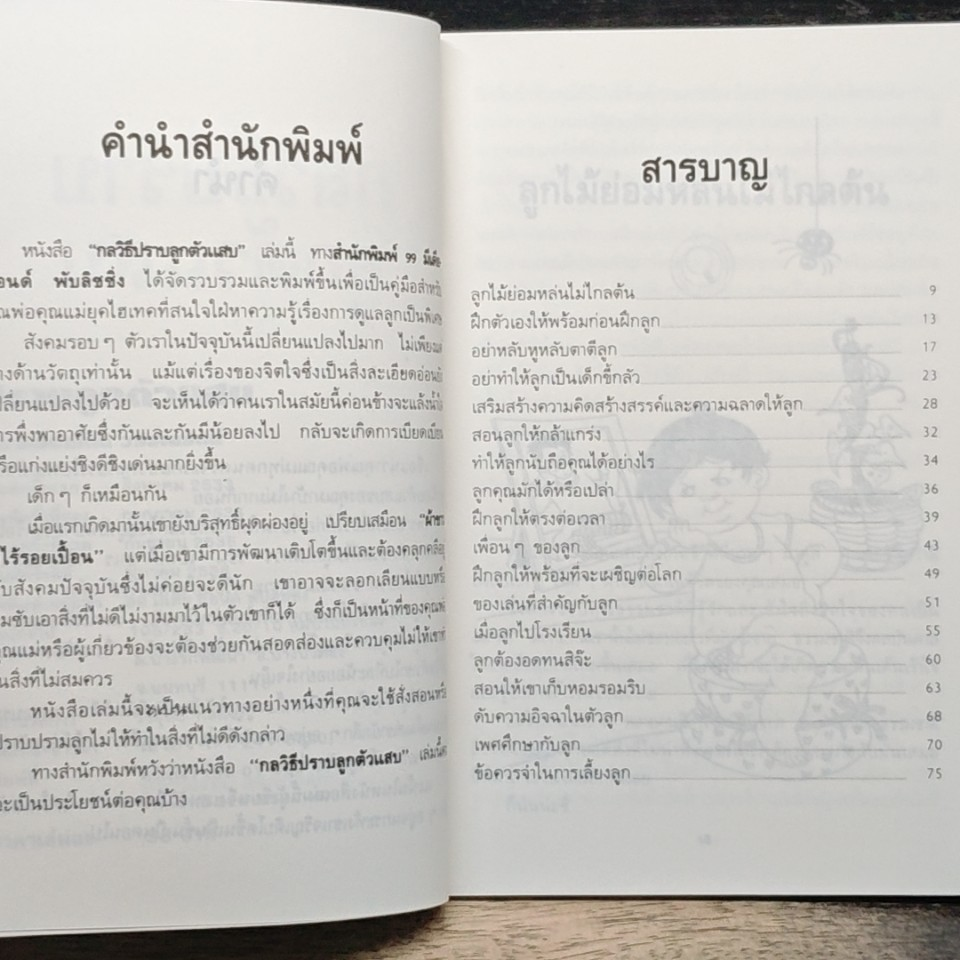 คำนำสำนักพิมพ์
หนังสือ "กลวิธีปราบลูกตัวแสบ" เล่มนี้ ทางสำนักพิมพ์ 99 มีเดีย
พับลิชชิ่ง ได้จัดรวบรวมและพิมพ์ขึ้นเพื่อเป็นคู่มือสำหรับ
คุณแม่ยุคไฮเทคที่สนใจใฝ่หาความรู้เรื่องการดูแลลูกเป็น
สังคมรอบๆ ตัวเราในปัจจุบันนี้เปลี่ยนแปลงไปมาก ไม่เพียงแต่
ด้านวัตถุเท่านั้น แม้แต่เรื่องของจิตใจซึ่งเป็นสิ่งละเอียดอ่อน
เปลี่ยนแปลงไปด้วย จะเห็นได้ว่าคนเราในสมัยนี้ค่อนข้างจะแล้ง
การพึ่งพาอาศัยซึ่งกันและกันมีน้อยลงไป กลับจะเกิดการเบียดเบียน
หรือแก่งแย่งชิงดีชิงเด่นมากยิ่งขึ้น
เด็กๆ ก็เหมือนกัน
เมื่อแรกเกิดมานั้นเขายังบริสุทธิ์ผุดผ่องอยู่ เปรียบเสมือน "ผ้าขาว
ไร้รอยเปื้อน" แต่เมื่อเขามีการพัฒนาเติบโตขึ้นและต้องคลุกคลีอยู่
กับสังคมปัจจุบันซึ่งไม่ค่อยจะดีนัก เขาอาจจะลอกเลียนแบบหรือ
ซึมซับเอาสิ่งที่ไม่ดีไม่งามมาไว้ในตัวเขาก็ได้ ซึ่งก็เป็นหน้าที่ของคุณพ่อ
คุณแม่หรือผู้เกี่ยวข้องจะต้องช่วยกันสอดส่องและควบคุมไม่ให้เขา
ในสิ่งที่ไม่สมควร
หนังสือเล่มนี้จะเป็นแนวทางอย่างหนึ่งที่คุณจะใช้สั่งสอนหรือ
ปราบปรามลูกไม่ให้ทำในสิ่งที่ไม่ดีดังกล่าว
ทางสำนักพิมพ์หวังว่าหนังสือ "กลวิธีปราบลูกตัวแสบ" เล่มนี้
จะเป็นประโยชน์ต่อคุณบ้าง
สารบาญ
ลูกไม้ย่อมหล่นไม่ไกลต้น 9
ฝึกตัวเองให้พร้อมก่อนฝึกลูก 13
อย่าหลับหูหลับตาตีลูก 17
อย่าทำให้ลูกเป็นเด็กขี้กลัว 23
เสริมสร้างความคิดสร้างสรรค์และความฉลาดให้ลูก 28
สอนลูกให้กล้าแกร่ง 32
ทำให้ลูกนับถือคุณได้อย่างไร 34
ลูกคุณมักได้หรือเปล่า 36
ฝึกลูกให้ตรงต่อเวลา 39
เพื่อนๆ ของลูก 43
ฝึกลูกให้พร้อมที่จะเผชิญต่อโลก 49
ของเล่นที่สำคัญกับลูก 51
เมื่อลูกไปโรงเรียน 55
ลูกต้องอดทนสิจ๊ะ 60
สอนให้เขาเก็บหอมรอมริบ 63
ดับความอิจฉาในตัวลูก 68
เพศศึกษากับลูก 70
ข้อควรจำในการเลี้ยงลูก 75